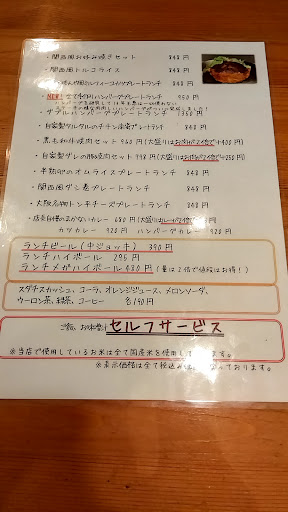 ・関西風お好み焼きセット 848円
・関西風トルコライス 848円
848円
・NEW! 950円
・ダブルハンバーグプレートランチ 1350円
・自家製タルタルのチキン南蛮プレートランチ 848円
・黒毛わ牛焼肉セット 948円(大盛りはお肉が2倍で+400円)
・自家製ダレの豚焼肉セット 848円(大盛りはお肉が2倍で+250円)
・半熟卵のオムライスプレートランチ 848円
・関西風ダシ巻プレートランチ 848円
・大阪名物トンテキプレートランチ 848円
カツカレー 920円 ハンバーグカレー 920円
ランチビール(中ジョッキ) 390円
ランチハイボール 295円
ランチメガハイボール 480円(量は2倍で値段はお得!)
スダチスカッシュ、コーラ、オレンジジュース、メロンソーダ、
ウーロン茶、緑茶、コーヒー 各190円
ご飯、お味噌汁セルフサービス
※当店で使用しているお米は全て国産米を使用しています。
※表示価格は全て税込みになっております。